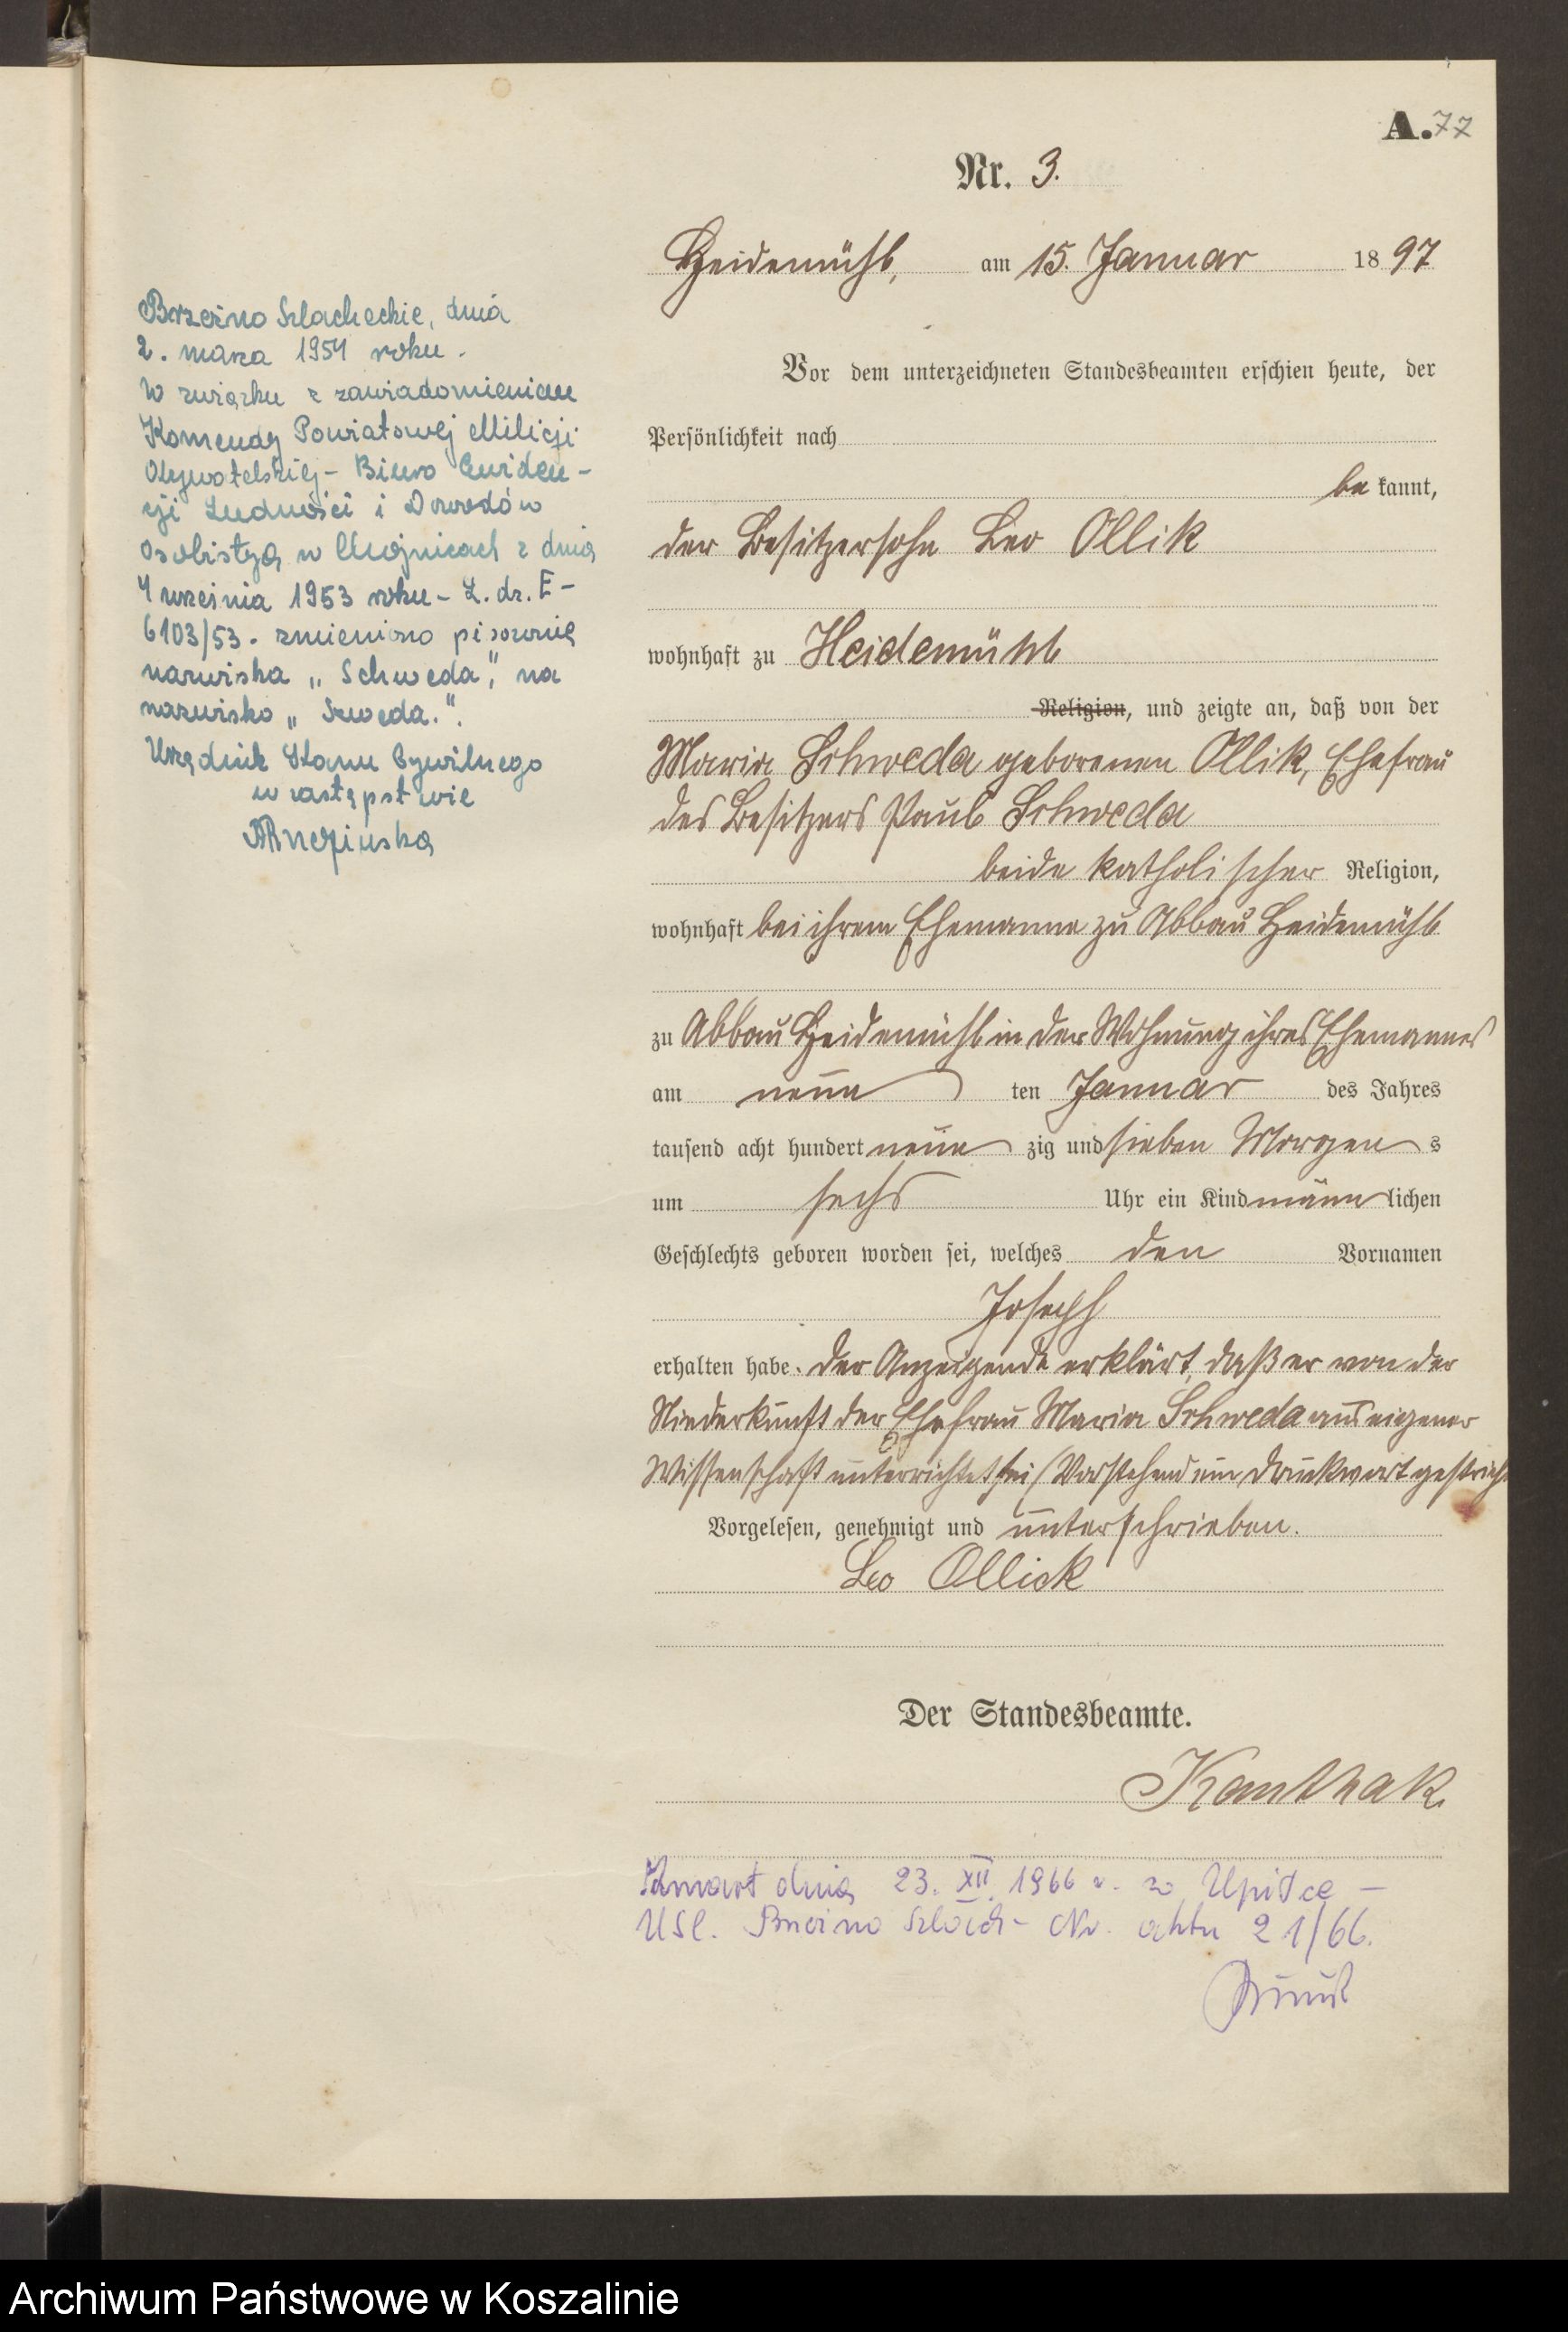 A. 77
Nr. 3.
Heidemühl, am 15. Januar 1897
Vor dem unterzeichneten Standesbeamten erschien heute, der
Persönlichkeit nach
be kannt,
der Besitzersohn Leo Ollik
wohnhaft zu Heidemühl
Religion, und zeigte an, daß von der
Maria Schweda geborenen Ollik, Ehefrau
des Besitzers Paul Schweda
beide katholischer Religion,
wohnhaft bei ihrem Ehemanne zu Abbau Heidemühl
zu Abbau Heidemühl in der Wohnung ihres Ehemannes
am neun ten Januar des Jahres
tausend acht hundert neun zig und sieben Morgen s
um sechs Uhr ein Kind männ lichen
Geschlechts geboren worden sei, welches den Vornamen
Joseph
erhalten habe. Der Anzeigende erklärt, daß er von der
Niederkunft der Ehefrau Maria Schweda aus eigener
Wissenschaft unterrichtet sei / Vorstehend ein Druckwort gestrich
Vorgelesen, genehmigt und unterschrieben.
Leo Ollick
Der Standesbeamte.
Kanthak
Zmarł dnia 23. XII. 1966 r. w Upiłce –
USC. Brzeźno Szlach – Nr. aktu 21/66.
Brzeźno Szlacheckie, dnia
2. marca 1954 roku.
W związku z zawiadomieniem
Komendy Powiatowej Milicji
Obywatelskiej – Biuro Ewiden-
cji Ludności i Dowodów
osobistych w Chojnicach z dnia
4 września 1953 roku – L. dz. E –
6103/53. zmieniono pisownię
nazwiska „Schweda", na
nazwisko „Szweda.".
Urzędnik Stanu Cywilnego
w zastępstwie
Archiwum Państwowe w Koszalinie